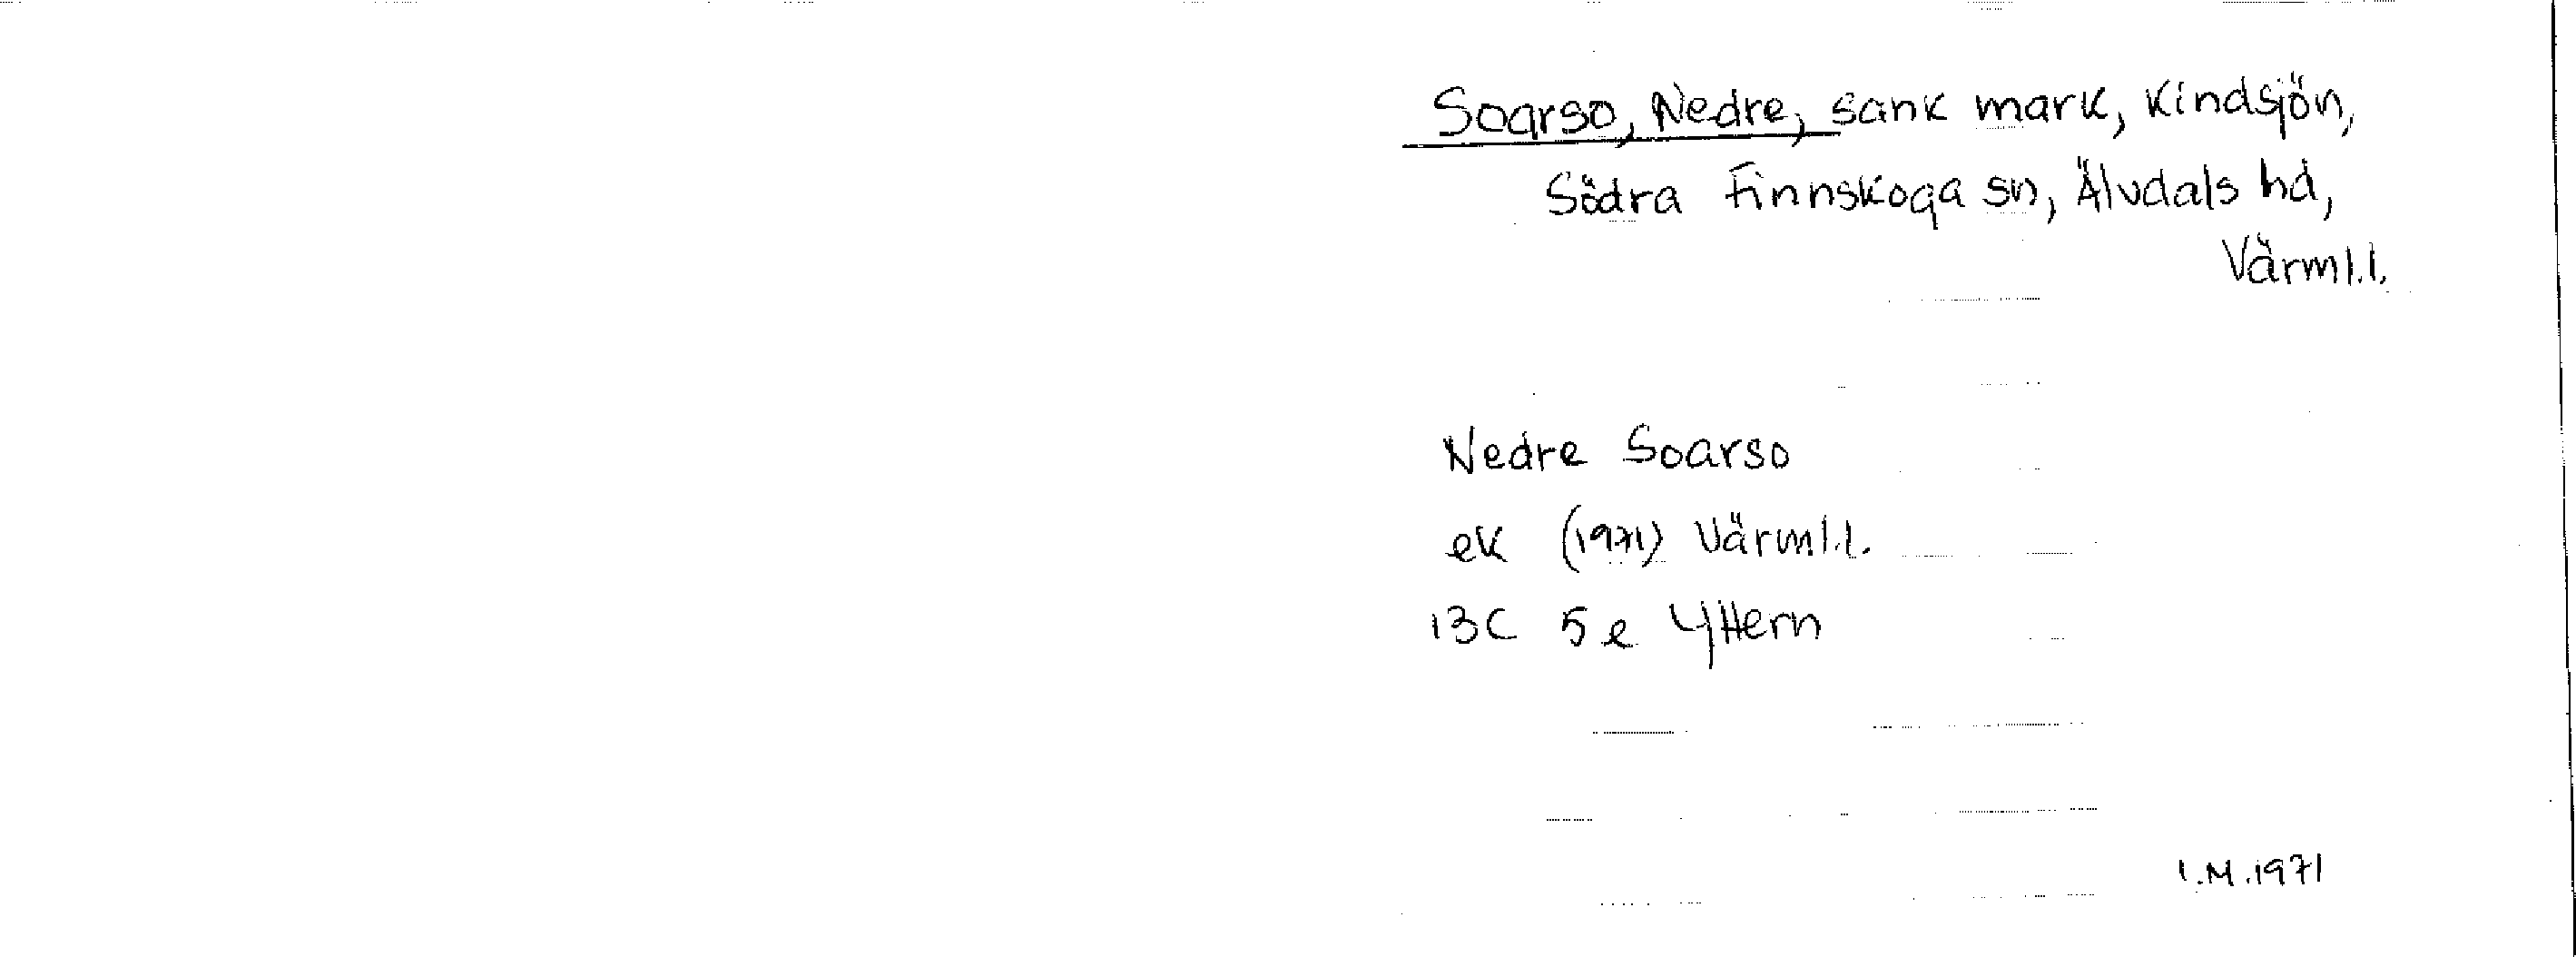 Soarso, Nedre, sank mark, Kindsjön,
Södra Finnskoga sn, Älvdals hd,
Värml.l.
Nedre Soarso
ek (1971) Värml.l.
13C 5e Yttern
I.M.1971